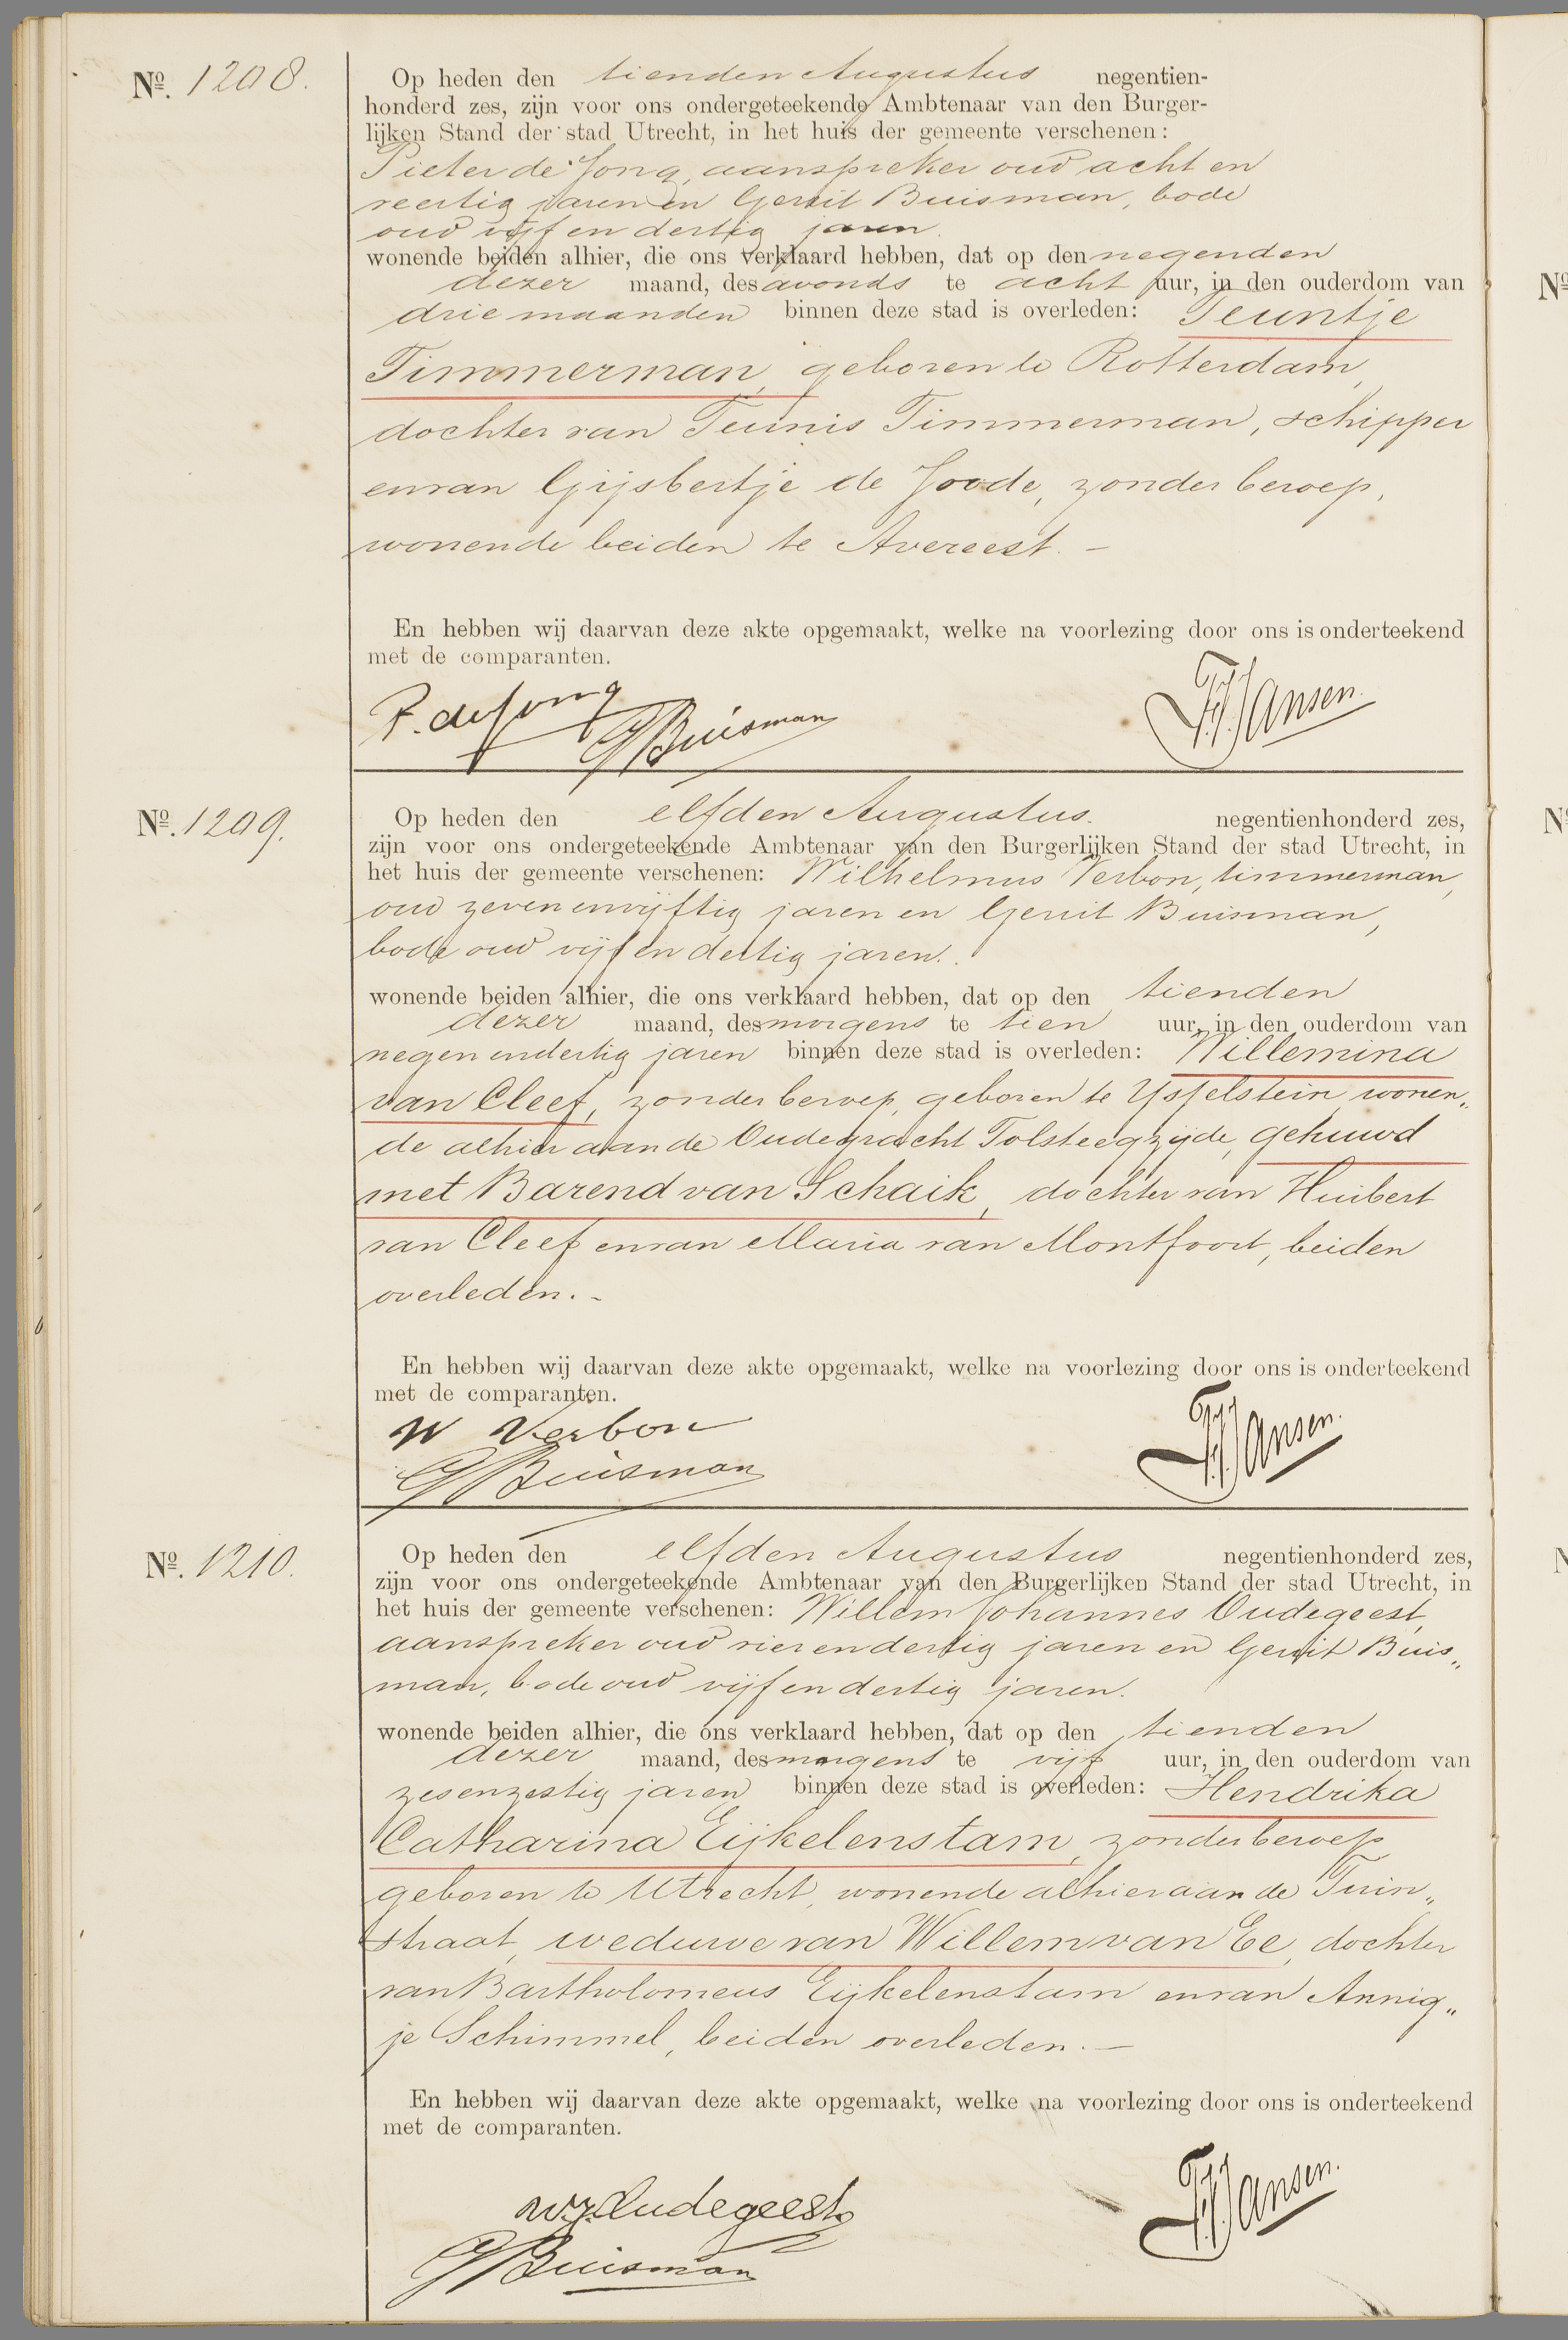 Nº. 1208.
Op heden den tienden Augustus negentien-
honderd zes, zijn voor ons ondergeteekende Ambtenaar van den Burger-
lijken Stand der stad Utrecht, in het huis der gemeente verschenen:
Pieter de Jong, aanspreker oud acht en
veertig jaren en Gerrit Buisman, bode
oud vijf en dertig jaren.
wonende beiden alhier, die ons verklaard hebben, dat op den negenden
dezer maand, des avonds te acht uur, in den ouderdom van
drie maanden binnen deze stad is overleden: Teuntje
Timmerman, geboren te Rotterdam,
dochter van Teunis Timmerman, schipper
en van Gijsbertje de Joode, zonder beroep,
wonende beiden te Avereest. –
En hebben wij daarvan deze akte opgemaakt, welke na voorlezing door ons is onderteekend
met de comparanten.
P. de Jong
G Buisman
Jansen.
Nº. 1209.
Op heden den elfden Augustus. negentienhonderd zes,
zijn voor ons ondergeteekende Ambtenaar van den Burgerlijken Stand der stad Utrecht, in
het huis der gemeente verschenen: Wilhelmus Verbon, timmerman,
oud zeven en vijftig jaren en Gerrit Buisman,
bode oud vijf en dertig jaren.
wonende beiden alhier, die ons verklaard hebben, dat op den tienden
dezer maand, des morgens te tien uur, in den ouderdom van
negen en dertig jaren binnen deze stad is overleden: Willemina
van Cleef, zonder beroep, geboren te Ysselstein, wonen„
de alhier aan de Oudegracht Tolsteegzijde, gehuwd
met Barend van Schaik, dochter van Huibert
van Cleef en van Maria van Montfoort, beiden
overleden. –
En hebben wij daarvan deze akte opgemaakt, welke na voorlezing door ons is onderteekend
met de comparanten.
W Verbon
G Buisman
Jansen.
Nº. 1210.
Op heden den elfden Augustus negentienhonderd zes,
zijn voor ons ondergeteekende Ambtenaar van den Burgerlijken Stand der stad Utrecht, in
het huis der gemeente verschenen: Willem Johannes Oudegeest,
aanspreker oud vier en dertig jaren en Gerrit Buis„
man, bode oud vijf en dertig jaren.
wonende beiden alhier, die ons verklaard hebben, dat op den tienden
dezer maand, des morgens te vijf uur, in den ouderdom van
zes en zestig jaren binnen deze stad is overleden: Hendrika
Catharina Eijkelenstam, zonder beroep
geboren te Utrecht, wonende alhier aan de Tuin„
straat, weduwe van Willem van Ee, dochter
van Bartholomeus Eijkelenstam en van Annig„
je Schimmel, beiden overleden. –
En hebben wij daarvan deze akte opgemaakt, welke na voorlezing door ons is onderteekend
met de comparanten.
W. J. Oudegeest
G Buisman
Jansen.